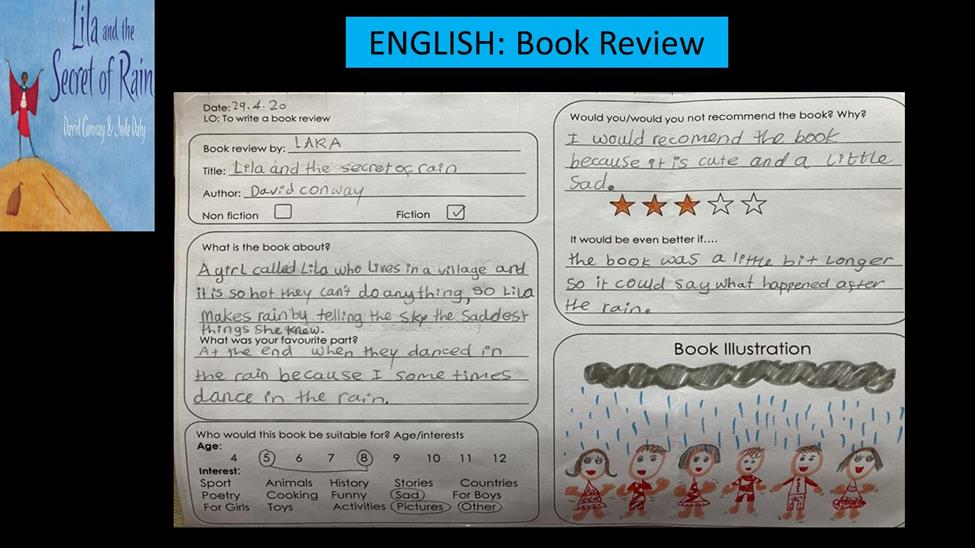 Lila and the
Secret of Rain
David Conway & Jude Daly
ENGLISH: Book Review
Date: 29.4.20
LO: To write a book review
Book review by: LARA
Title: Lila and the secret of rain
Author: David conway
Non fiction
Fiction ✓
What is the book about?
A girl called Lila who lives in a village and
it is so hot they can't do anything, so Lila
makes rain by telling the sky the saddest
things she knew.
What was your favourite part?
At the end when they danced in
the rain because I some times
dance in the rain.
Who would this book be suitable for? Age/interests
Age:
4 5 6 7 8 9 10 11 12
Interest:
Sport Animals History Stories Countries
Poetry Cooking Funny Sad For Boys
For Girls Toys Activities Pictures Other
Would you/would you not recommend the book? Why?
I would recomend the book
because it is cute and a little
sad.
It would be even better if....
the book was a little bit longer
so it could say what happened after
the rain.
Book Illustration